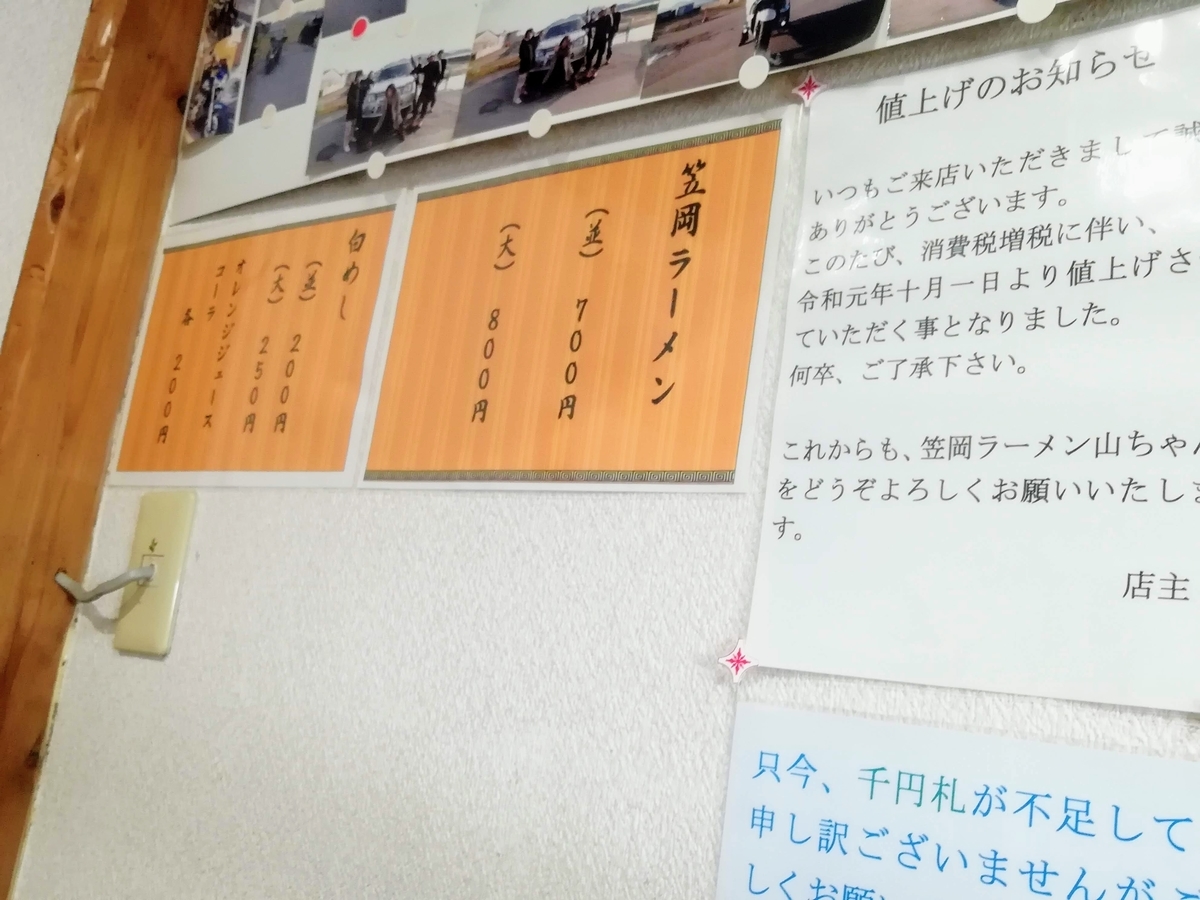 笠岡ラーメン
(並) 700円
(大) 800円
白めし
(並) 200円
(大) 250円
オレンジジュース
コーラ
各 200円
値上げのお知らせ
いつもご来店いただきまして誠
ありがとうございます。
このたび、消費税増税に伴い、
令和元年十月一日より値上げさ
ていただく事となりました。
何卒、ご了承下さい。
これからも、笠岡ラーメン山ちゃん
をどうぞよろしくお願いいたしま
す。
店主
只今、千円札が不足して
申し訳ございませんが
しくお願い